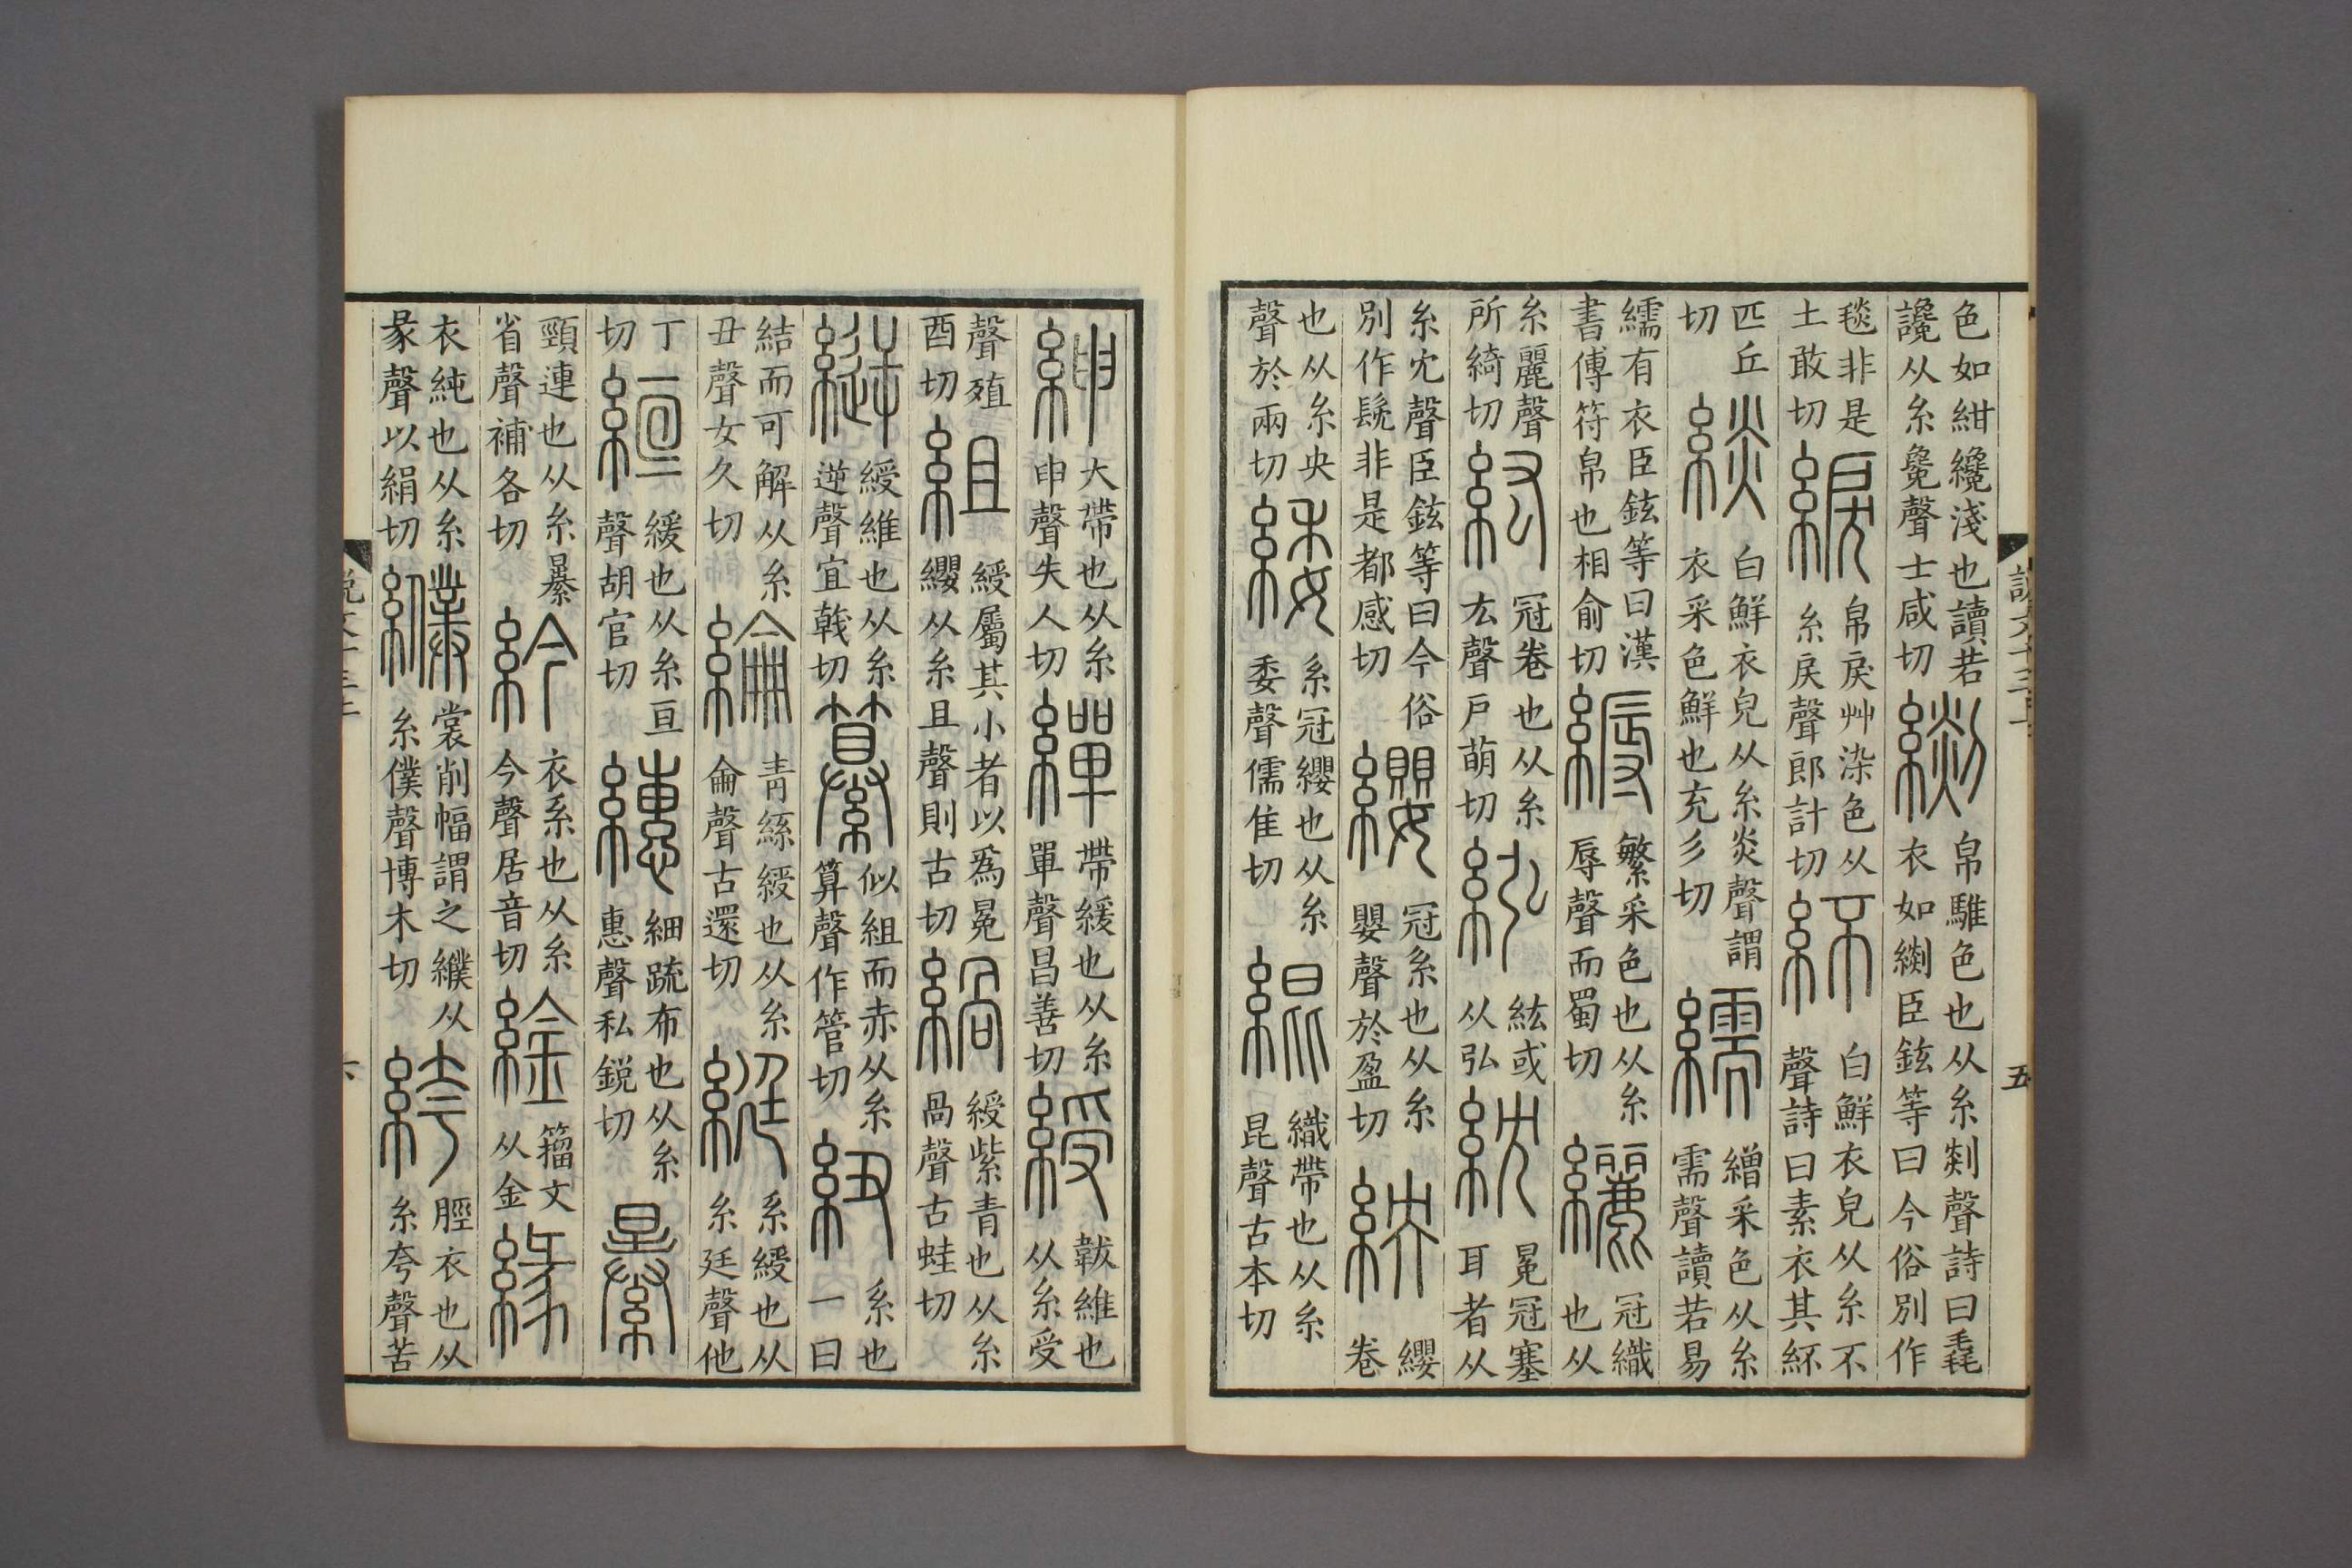 說文十三上
五
色如紺纔淺也讀若讒从糸毚聲士咸切𦇧帛騅色也从糸剡聲詩曰毳衣如𦇧臣鉉等曰今俗別作
毯非是土敢切綟帛戾艸染色从糸戾聲郎計切紑白鮮衣皃从糸不聲詩曰素衣其紑
匹丘切緂白鮮衣皃从糸炎聲謂衣采色鮮也充彡切繻繒采色从糸需聲讀若易
繻有衣臣鉉等曰漢書傳符帛也相俞切縟繁采色也从糸辱聲而蜀切纚冠織也从
糸麗聲所綺切紘冠卷也从糸厷聲戶萌切紭紘或从弘紞冕冠塞耳者从
糸冘聲臣鉉等曰今俗別作髧非是都感切纓冠系也从糸嬰聲於盈切紻纓卷
也从糸央聲於兩切緌系冠纓也从糸委聲儒隹切緄織帶也从糸昆聲古本切
紳大帶也从糸申聲失人切繟帶緩也从糸單聲昌善切綬韍維也从糸受
聲殖酉切組綬屬其小者以爲冕纓从糸且聲則古切緺綬紫青也从糸咼聲古蛙切
縌綬維也从糸逆聲宜戟切纂似組而赤从糸算聲作管切紐系也一曰
結而可解从糸丑聲女久切綸青絲綬也从糸侖聲古還切綎系綬也从糸廷聲他
丁切絙緩也从糸亘聲胡官切繐細疏布也从糸惠聲私銳切暴
頸連也从糸㬥省聲補各切紟衣系也从糸今聲居音切縊籒文从金緣
衣純也从糸彖聲以絹切纀裳削幅謂之纀从糸僕聲博木切絝脛衣也从糸夸聲苦
說文十三上
六